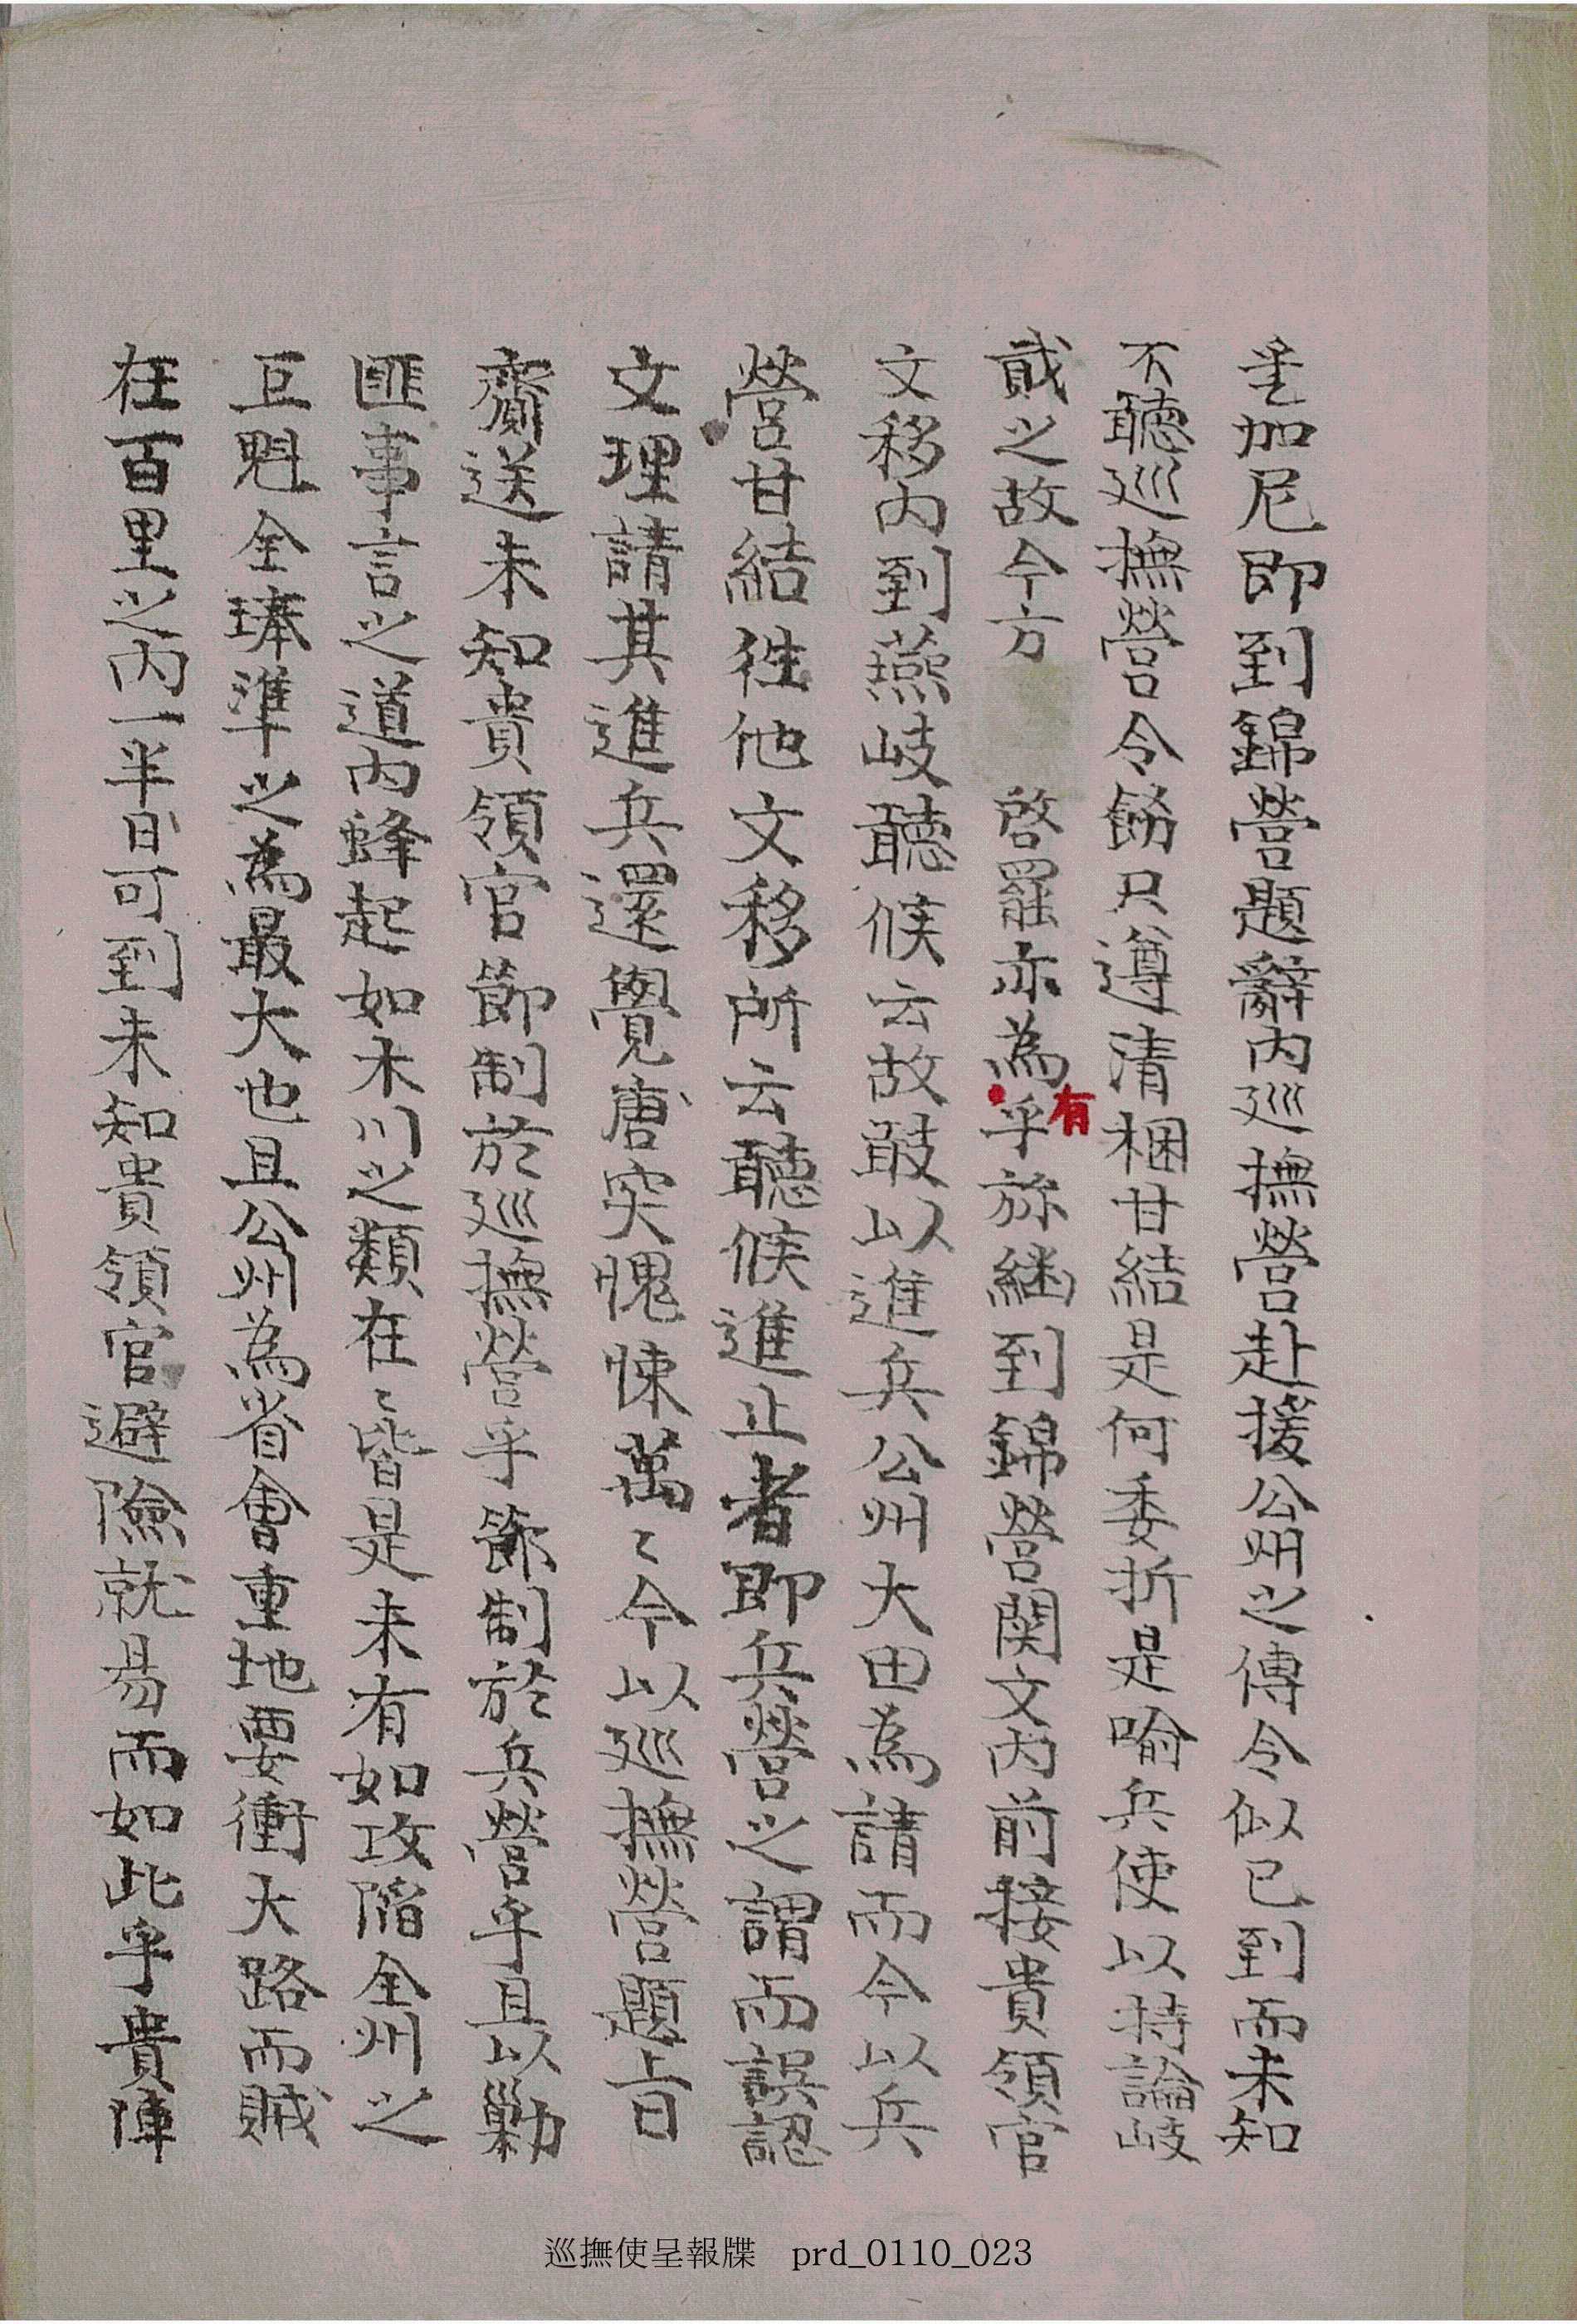 是加尼即到錦營題辭內巡撫營赴援公州之傳令似已到而未知
不聽巡撫營令飭只遵清梱甘結是何委折是喻兵使以持論岐
貳之故今方 啓罷亦為乎旀繼到錦營関文內前接貴領官
有
文移內到燕岐聽候云故敢以進兵公州大田為請而今以兵
營甘結徃他文移所云聽候進止者即兵營之謂而誤認
文理請其進兵還覺唐突愧悚萬〻今以巡撫營題旨
齎送未知貴領官節制於巡撫營乎節制於兵營乎且以勦
匪事言之道內蜂起如木川之類在〻皆是未有如攻陷全州之
巨魁全琫準之為最大也且公州為省會重地要衝大路而賊
在百里之內一半日可到未知貴領官避險就易而如此乎貴陣
巡撫使呈報牒 prd_0110_023